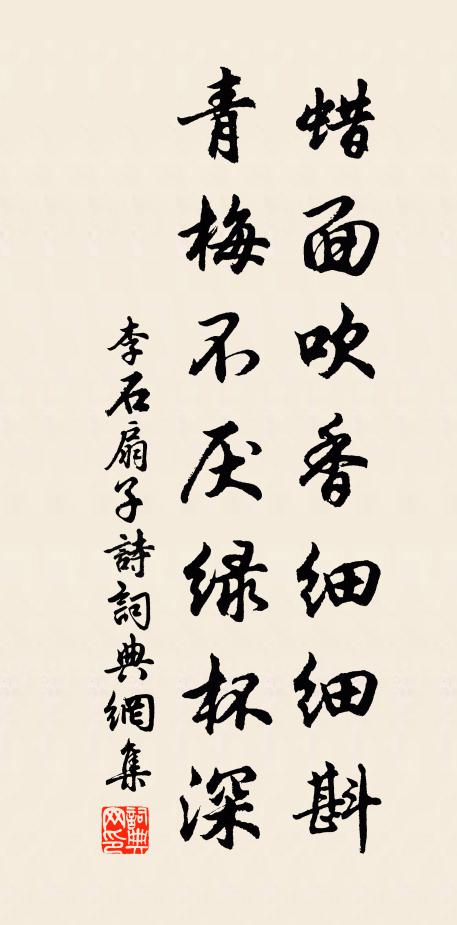 蜡面吹香细细斟
青梅不厌绿杯深
李石扇子詩詞典網集
詞典網印